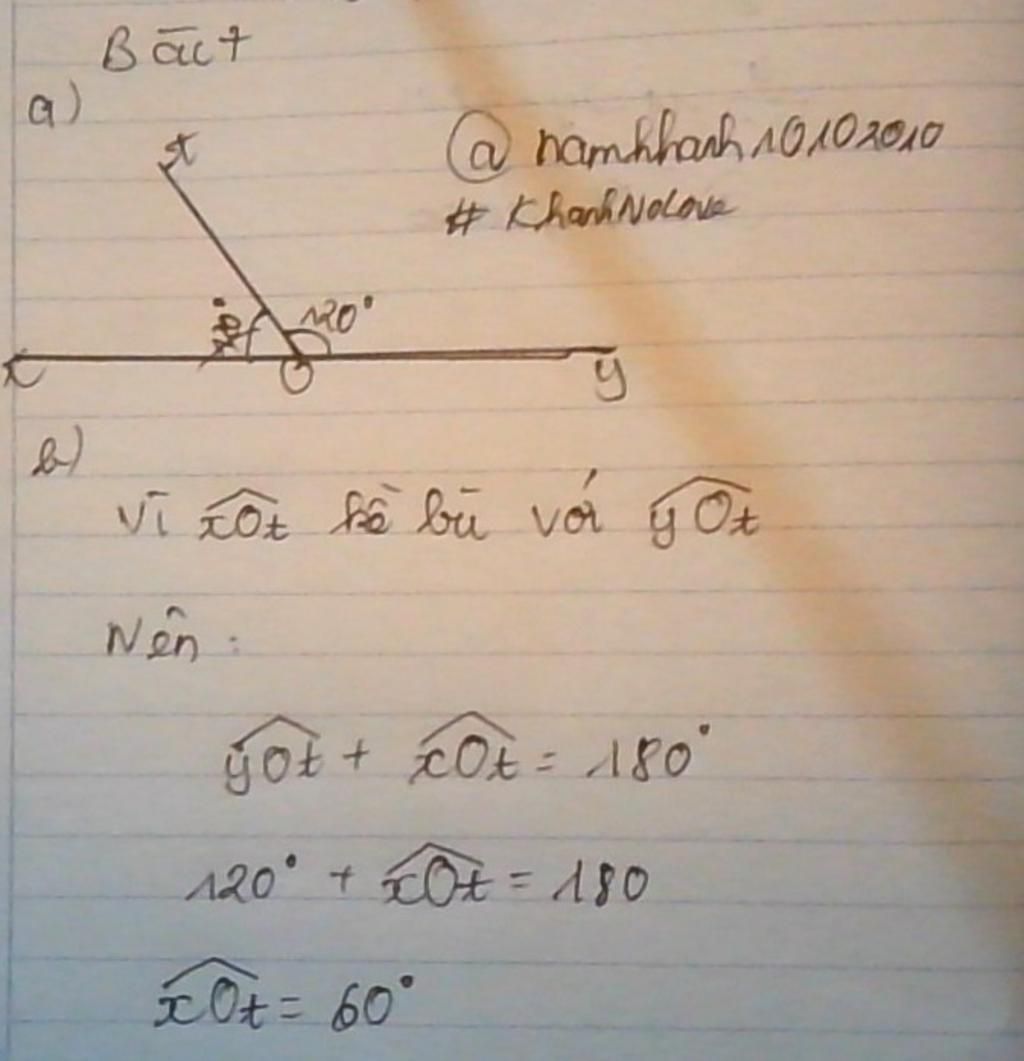 Bài 7
a)
@ namkhanh10102010
# KhanhNoLove
t
120°
x O y
b)
Vì xOt kề bù với yOt
Nên :
yOt + xOt = 180°
120° + xOt = 180
xOt = 60°